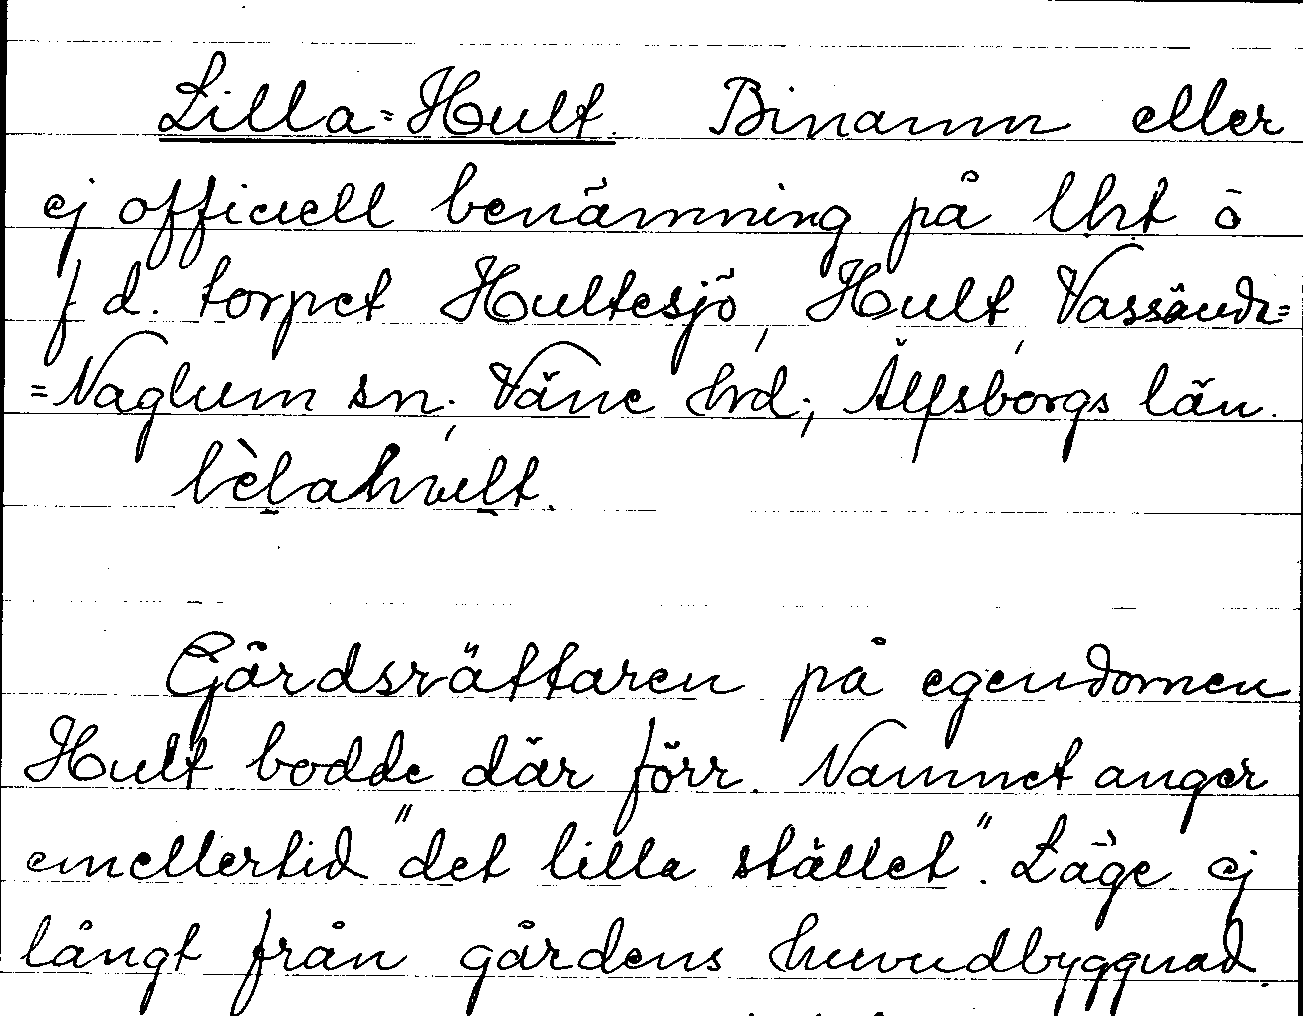 Lilla=Hult. Binamn eller
ej officiell benämning på lht ö
f d. torpet Hultesjö, Hult, Vassända=
=Naglum sn; Väne hrd; Älfsborgs län.
lèlahult.
Gårdsrättaren på egendomen
Hult bodde där förr. Namnet anger
emellertid "det lilla stället". Läge ej
långt från gårdens huvudbyggnad.